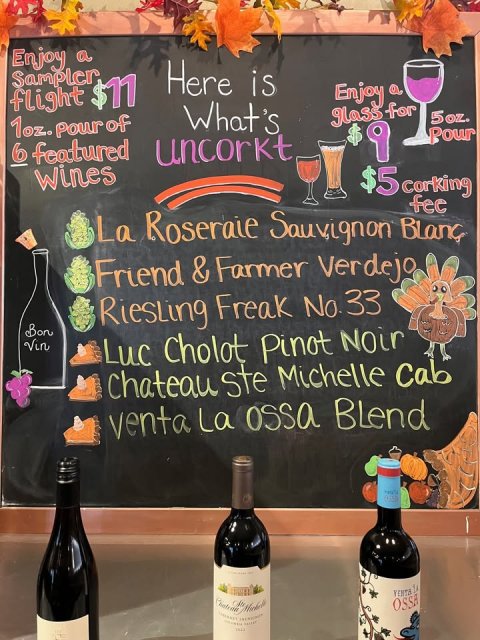 Enjoy a
sampler
flight $11
1oz. pour of
6 featured
wines
Here is
What's
uncorkt
Enjoy a
glass for
$9
5oz.
pour
$5 corking
fee
La Roseraie Sauvignon Blanc
Friend & Farmer Verdejo
Riesling Freak No. 33
Luc Cholot Pinot Noir
Chateau Ste Michelle Cab
Venta La Ossa Blend
Bon
Vin
Chateau Ste Michelle
CABERNET SAUVIGNON
VENTA LA
OSSA